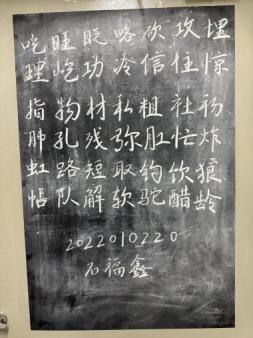 吃旺眨略砍攻埋
理屹功冷信住惊
指物材私粗社初
肺孔残弥肛忙炸
虹路短取钓饮狼
帖队解软驼醋龄
2022010220
石福鑫